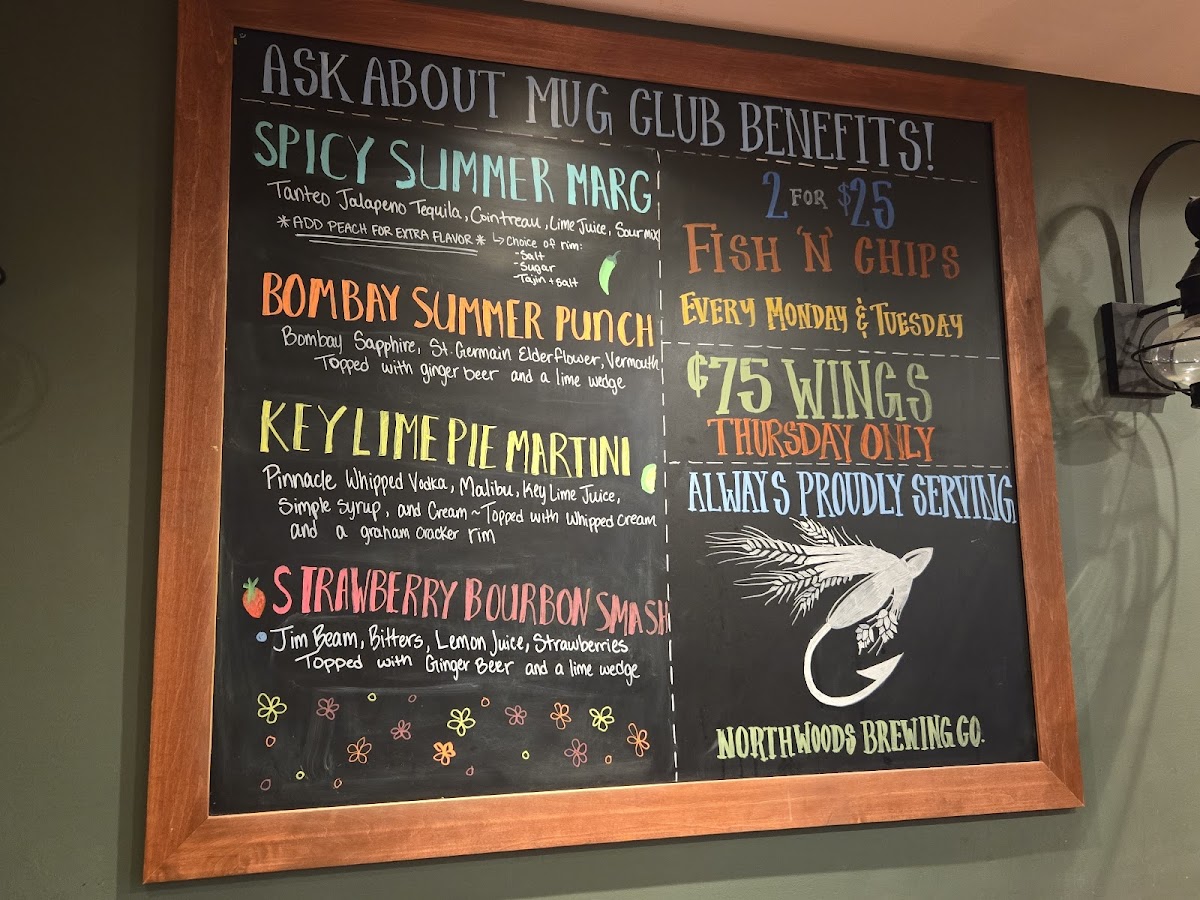 ASK ABOUT MUG CLUB BENEFITS!
SPICY SUMMER MARG
Tanteo Jalapeno Tequila, Cointreau, Lime Juice, Sour mix
*ADD PEACH FOR EXTRA FLAVOR* ↳Choice of rim:
-Salt
-Sugar
-Tajin + salt
BOMBAY SUMMER PUNCH
Bombay Sapphire, St. Germain Elderflower, Vermouth
Topped with ginger beer and a lime wedge
KEY LIME PIE MARTINI
Pinnacle Whipped Vodka, Malibu, Key Lime Juice,
Simple Syrup, and Cream ~ Topped with Whipped cream
and a graham cracker rim
STRAWBERRY BOURBON SMASH
Jim Beam, Bitters, Lemon Juice, Strawberries
Topped with Ginger Beer and a lime wedge
2 FOR $25
FISH 'N' CHIPS
EVERY MONDAY & TUESDAY
¢75 WINGS
THURSDAY ONLY
ALWAYS PROUDLY SERVING
NORTHWOODS BREWING CO.